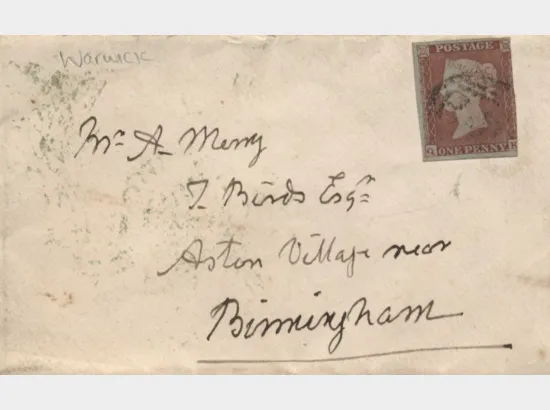 Warwick
POSTAGE
ONE PENNY
Mr A Merry
T. Birds Esqr
Aston Village near
Birmingham